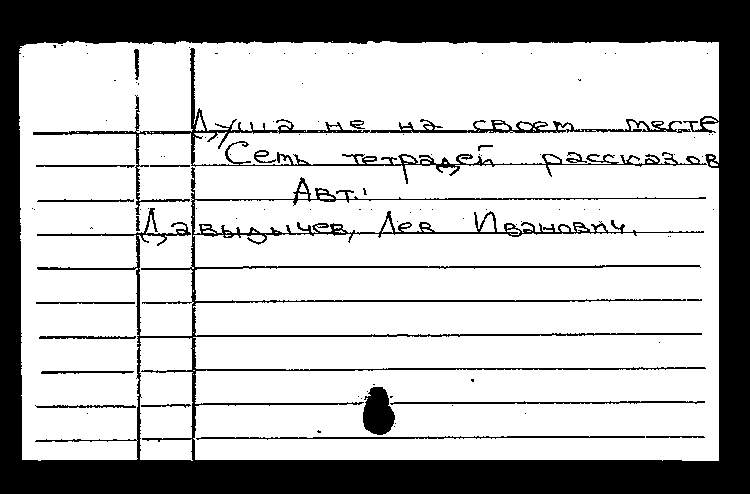 Душа не на своем месте
Семь тетрадей рассказов
Авт.:
Давыдычев, Лев Иванович.